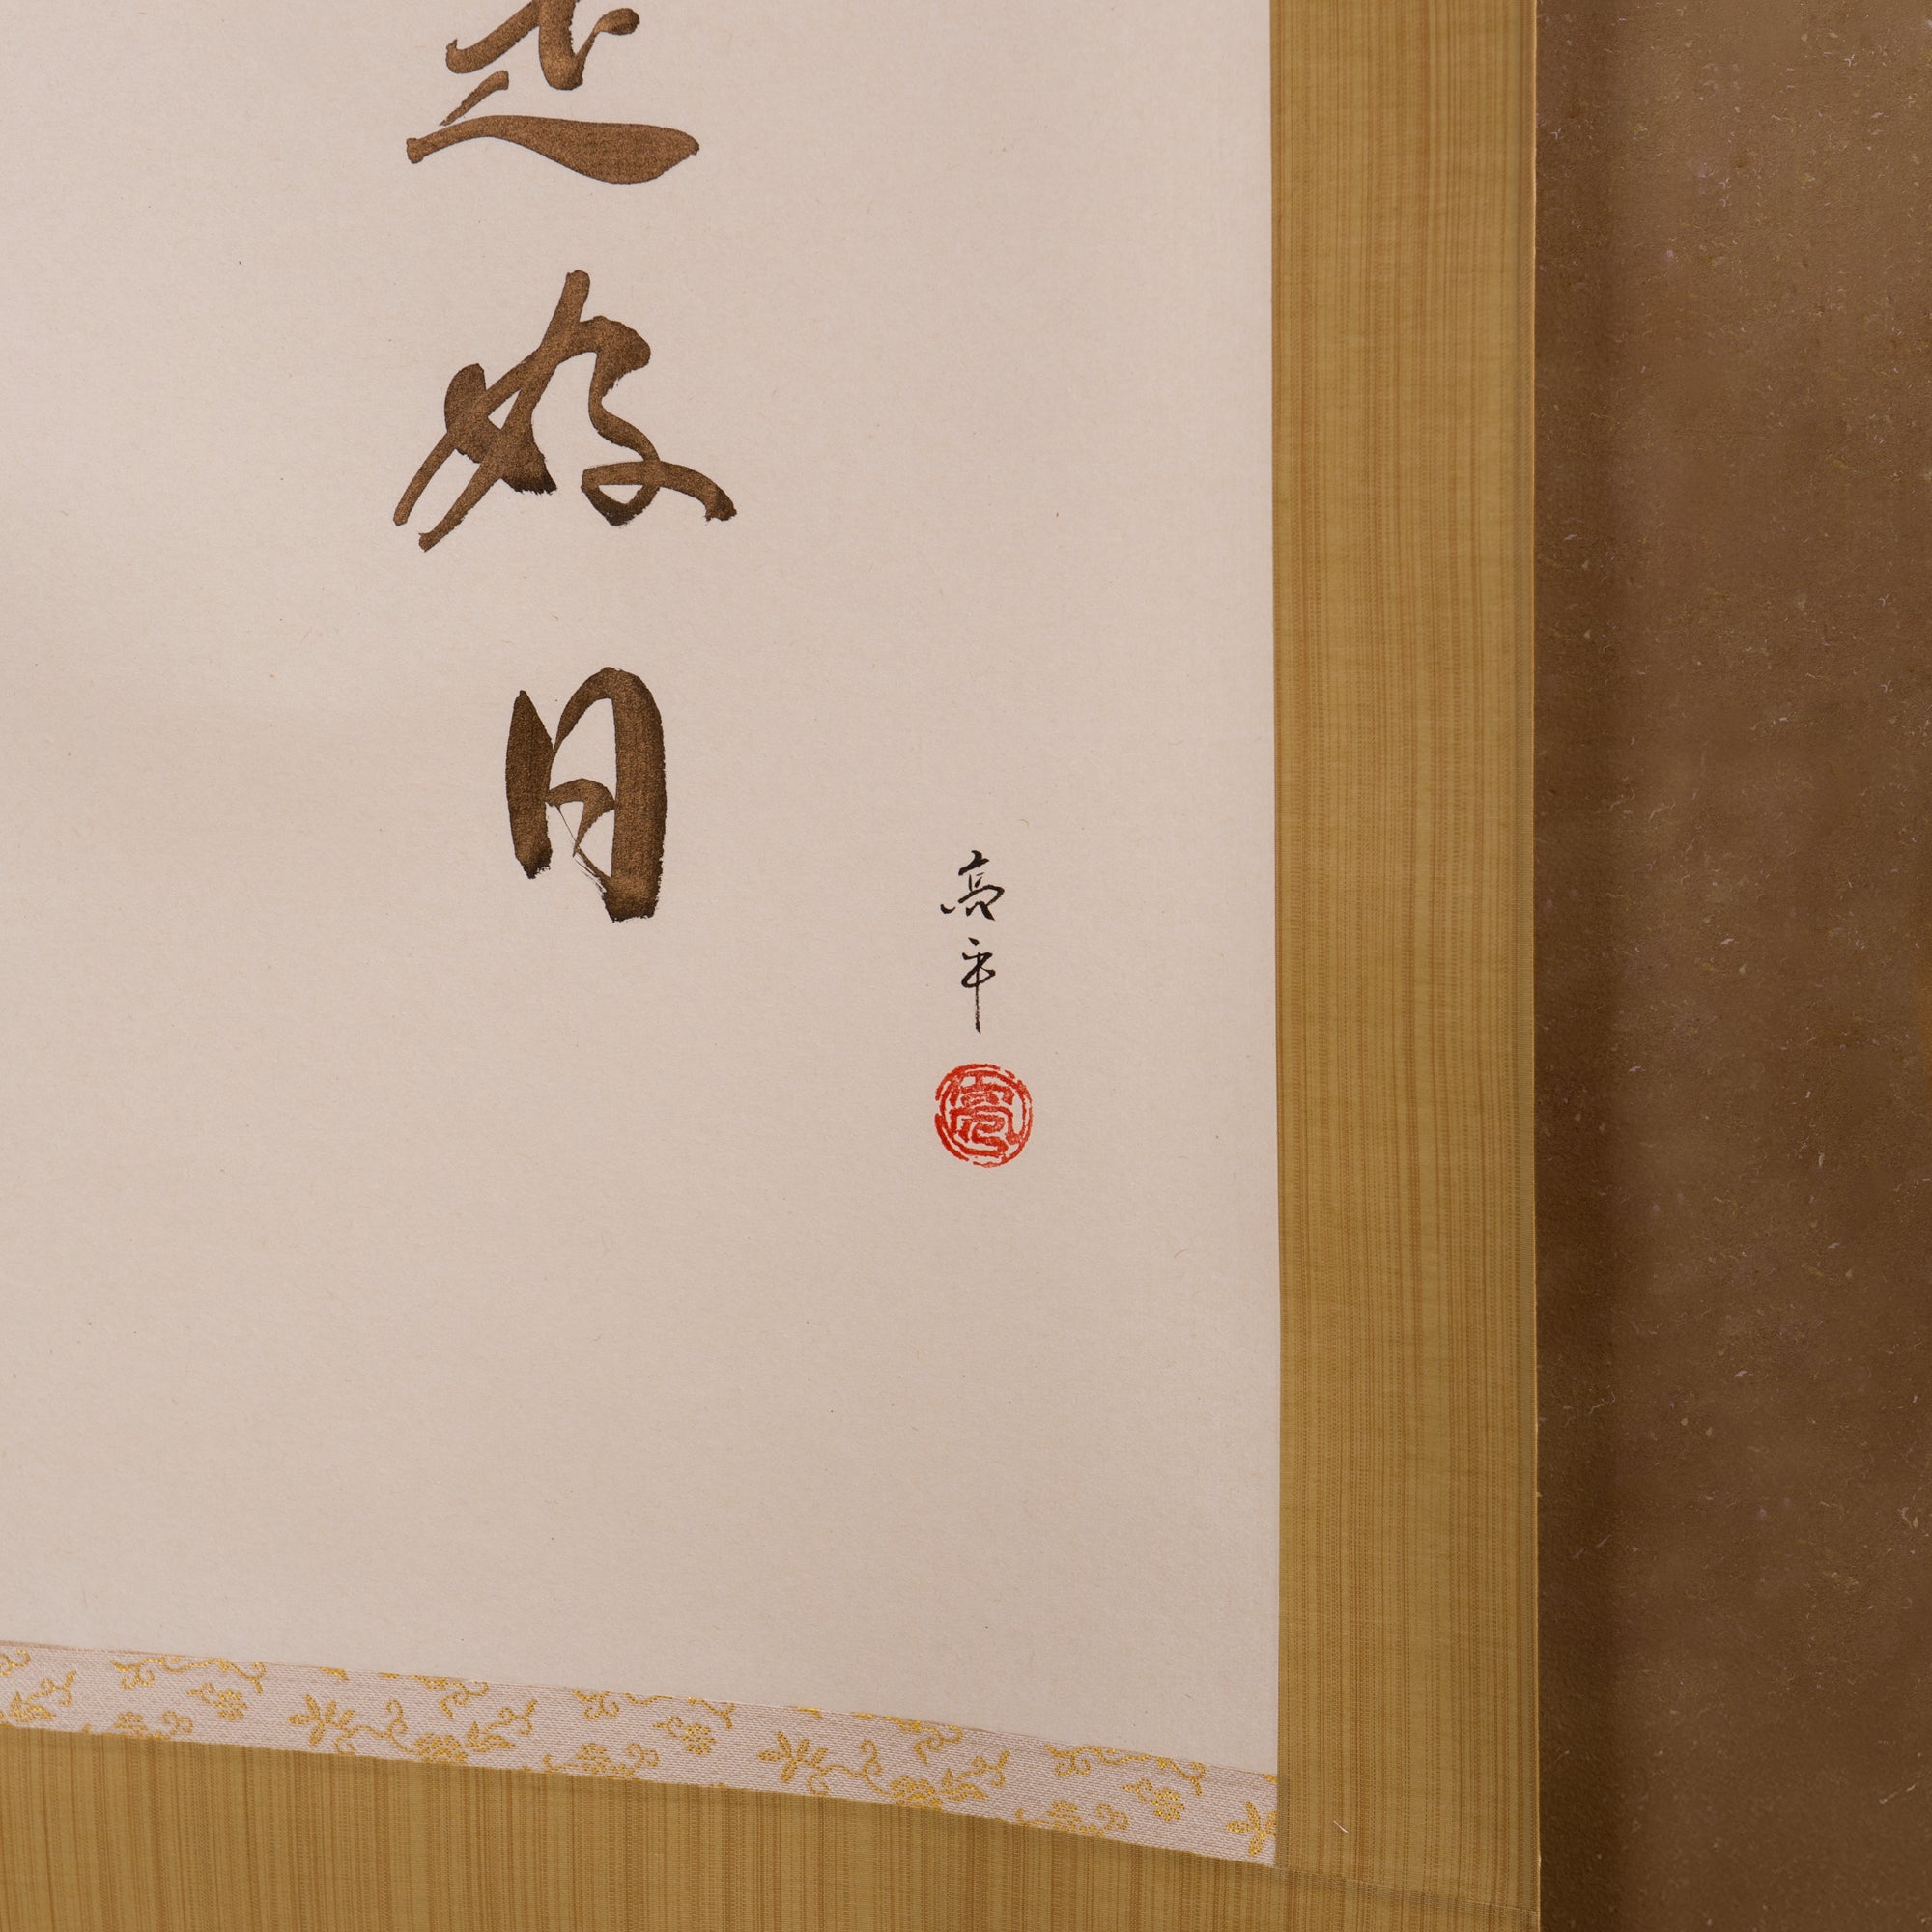 是好日
亮平